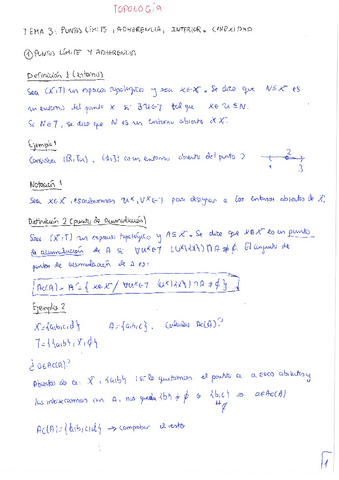 TOPOLOGÍA
TEMA 3: PUNTOS LÍMITE, ADHERENCIA, INTERIOR. CONEXIDAD
① PUNTOS LÍMITE Y ADHERENCIA
Definición 1 (entorno)
Sea (X,T) un espacio topológico y sea x∈X. Se dice que N⊆X es
un entorno del punto x si ∃U∈T tal que x∈U⊆N.
Si N∈T, se dice que N es un entorno abierto de X.
Ejemplo 1
Considera (ℝ,Tu), (1,3) es un entorno abierto del punto 2
2
1 3
Notación 1
Sea x∈X, escribiremos Uˣ, Vˣ∈T para designar a los entornos abiertos de X.
Definición 2 (punto de acumulación)
Sea (X,T) un espacio topológico y A⊆X. Se dice que x∈X es un punto
de acumulación de A si ∀Uˣ∈T (Uˣ\{x})∩A≠∅. El conjunto de
puntos de acumulación de A es:
Ac(A) = A' = { x∈X / ∀Uˣ∈T (Uˣ\{x})∩A≠∅ }
Ejemplo 2
X={a,b,c,d} A={a,b,c}. Calcular Ac(A)?
T={{a,b},X,∅}
¿a∈Ac(A)?
Abiertos de a: X, {a,b} | Si le quitamos el punto a a esos abiertos y
los intersecamos con A, nos queda {b}≠∅ y {b,c} ⇒ a∈Ac(A)
≠∅
Ac(A)={a,b,c,d} → comprobar el resto
1